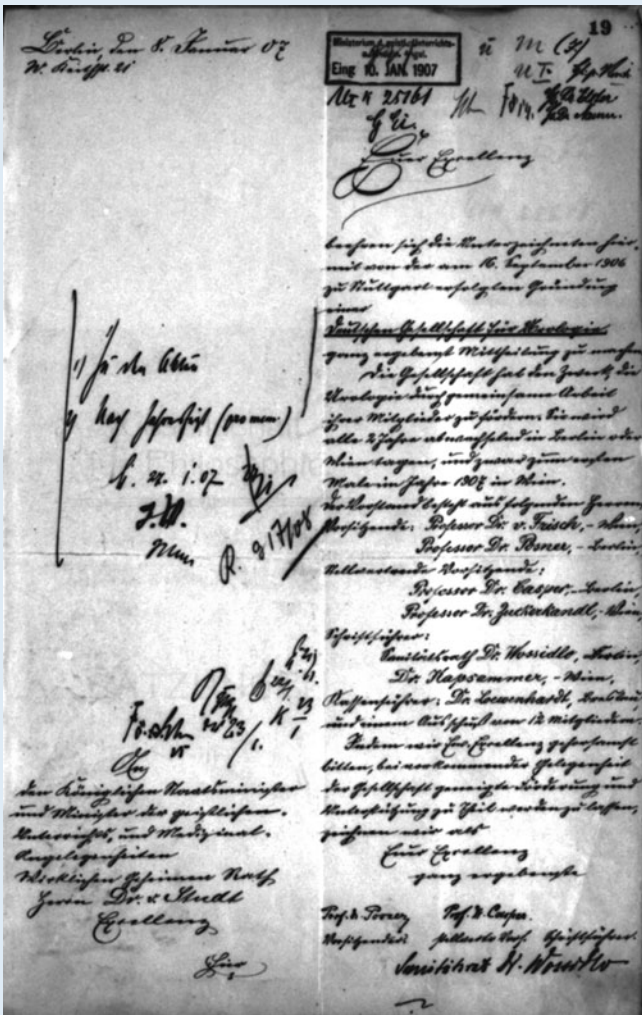 19
Berlin, den 8. Januar 07
W.
Ministerium d. geistl. Unterrichts-
Eing 10. JAN. 1907
Euer Excellenz
beehren sich die Unterzeichneten hier-
mit von der am 16. September 1906
zu Stuttgart erfolgten Gründung
einer
Deutschen Gesellschaft für Urologie
ganz ergebenst Mittheilung zu machen
Die Gesellschaft hat den Zweck, die
Urologie durch gemeinsame Arbeit
ihrer Mitglieder zu fördern. Sie wird
alle 2 Jahre abwechselnd in Berlin oder
Wien tagen, und zwar zum ersten
Male im Jahre 1907 in Wien.
Der Vorstand besteht aus folgenden Herren
Vorsitzende: Professor Dr. v. Frisch, - Wien,
Professor Dr. Posner, - Berlin,
Stellvertretende Vorsitzende:
Professor Dr. Casper, - Berlin,
Professor Dr. Zuckerkandl, - Wien,
Schriftführer:
Sanitätsrath Dr. Wossidlo, - Berlin
Dr. Kapsammer, - Wien,
Kassenführer: Dr. Loewenhardt, Breslau
und einem Ausschuß von 12 Mitgliedern.
Indem wir Ew. Excellenz gehorsamst
bitten, bei vorkommender Gelegenheit
der Gesellschaft geneigte Förderung und
Unterstützung zu Theil werden zu lassen,
zeichnen wir als
Euer Excellenz
ganz ergebenste
Prof. Dr. Posner Prof. Dr. Casper.
Vorsitzender Schriftführer.
Sanitätsrat Wossidlo
1) Zu den Akten
2) Nach Jahresfrist
B. 21. 1. 07
R. 217/08
An
den Königlichen Staatsminister
und Minister der geistlichen-
Unterrichts, und Medizinal-
Angelegenheiten
Wirklichen Geheimen Rath
Herrn Dr. v. Studt
Excellenz
Hier